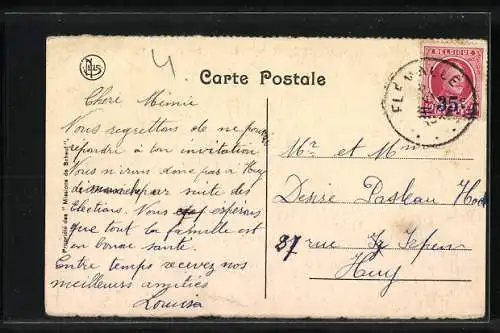 4.
Carte Postale
BELGIQUE
FLÉMALLE
35c
Propriété des "Missions de Scheut".
Chère Mimie
Nous regrettons de ne pouvoir
répondre à ton invitation
Nous n'irons donc pas à Huy
dimanche par suite des
Elections. Nous espérons
que tout la famille est
en bonne santé.
Entre temps recevez nos
meilleurs amitiés
Louisa
Mr et Mme
Désiré Pasleau
37 rue
Huy